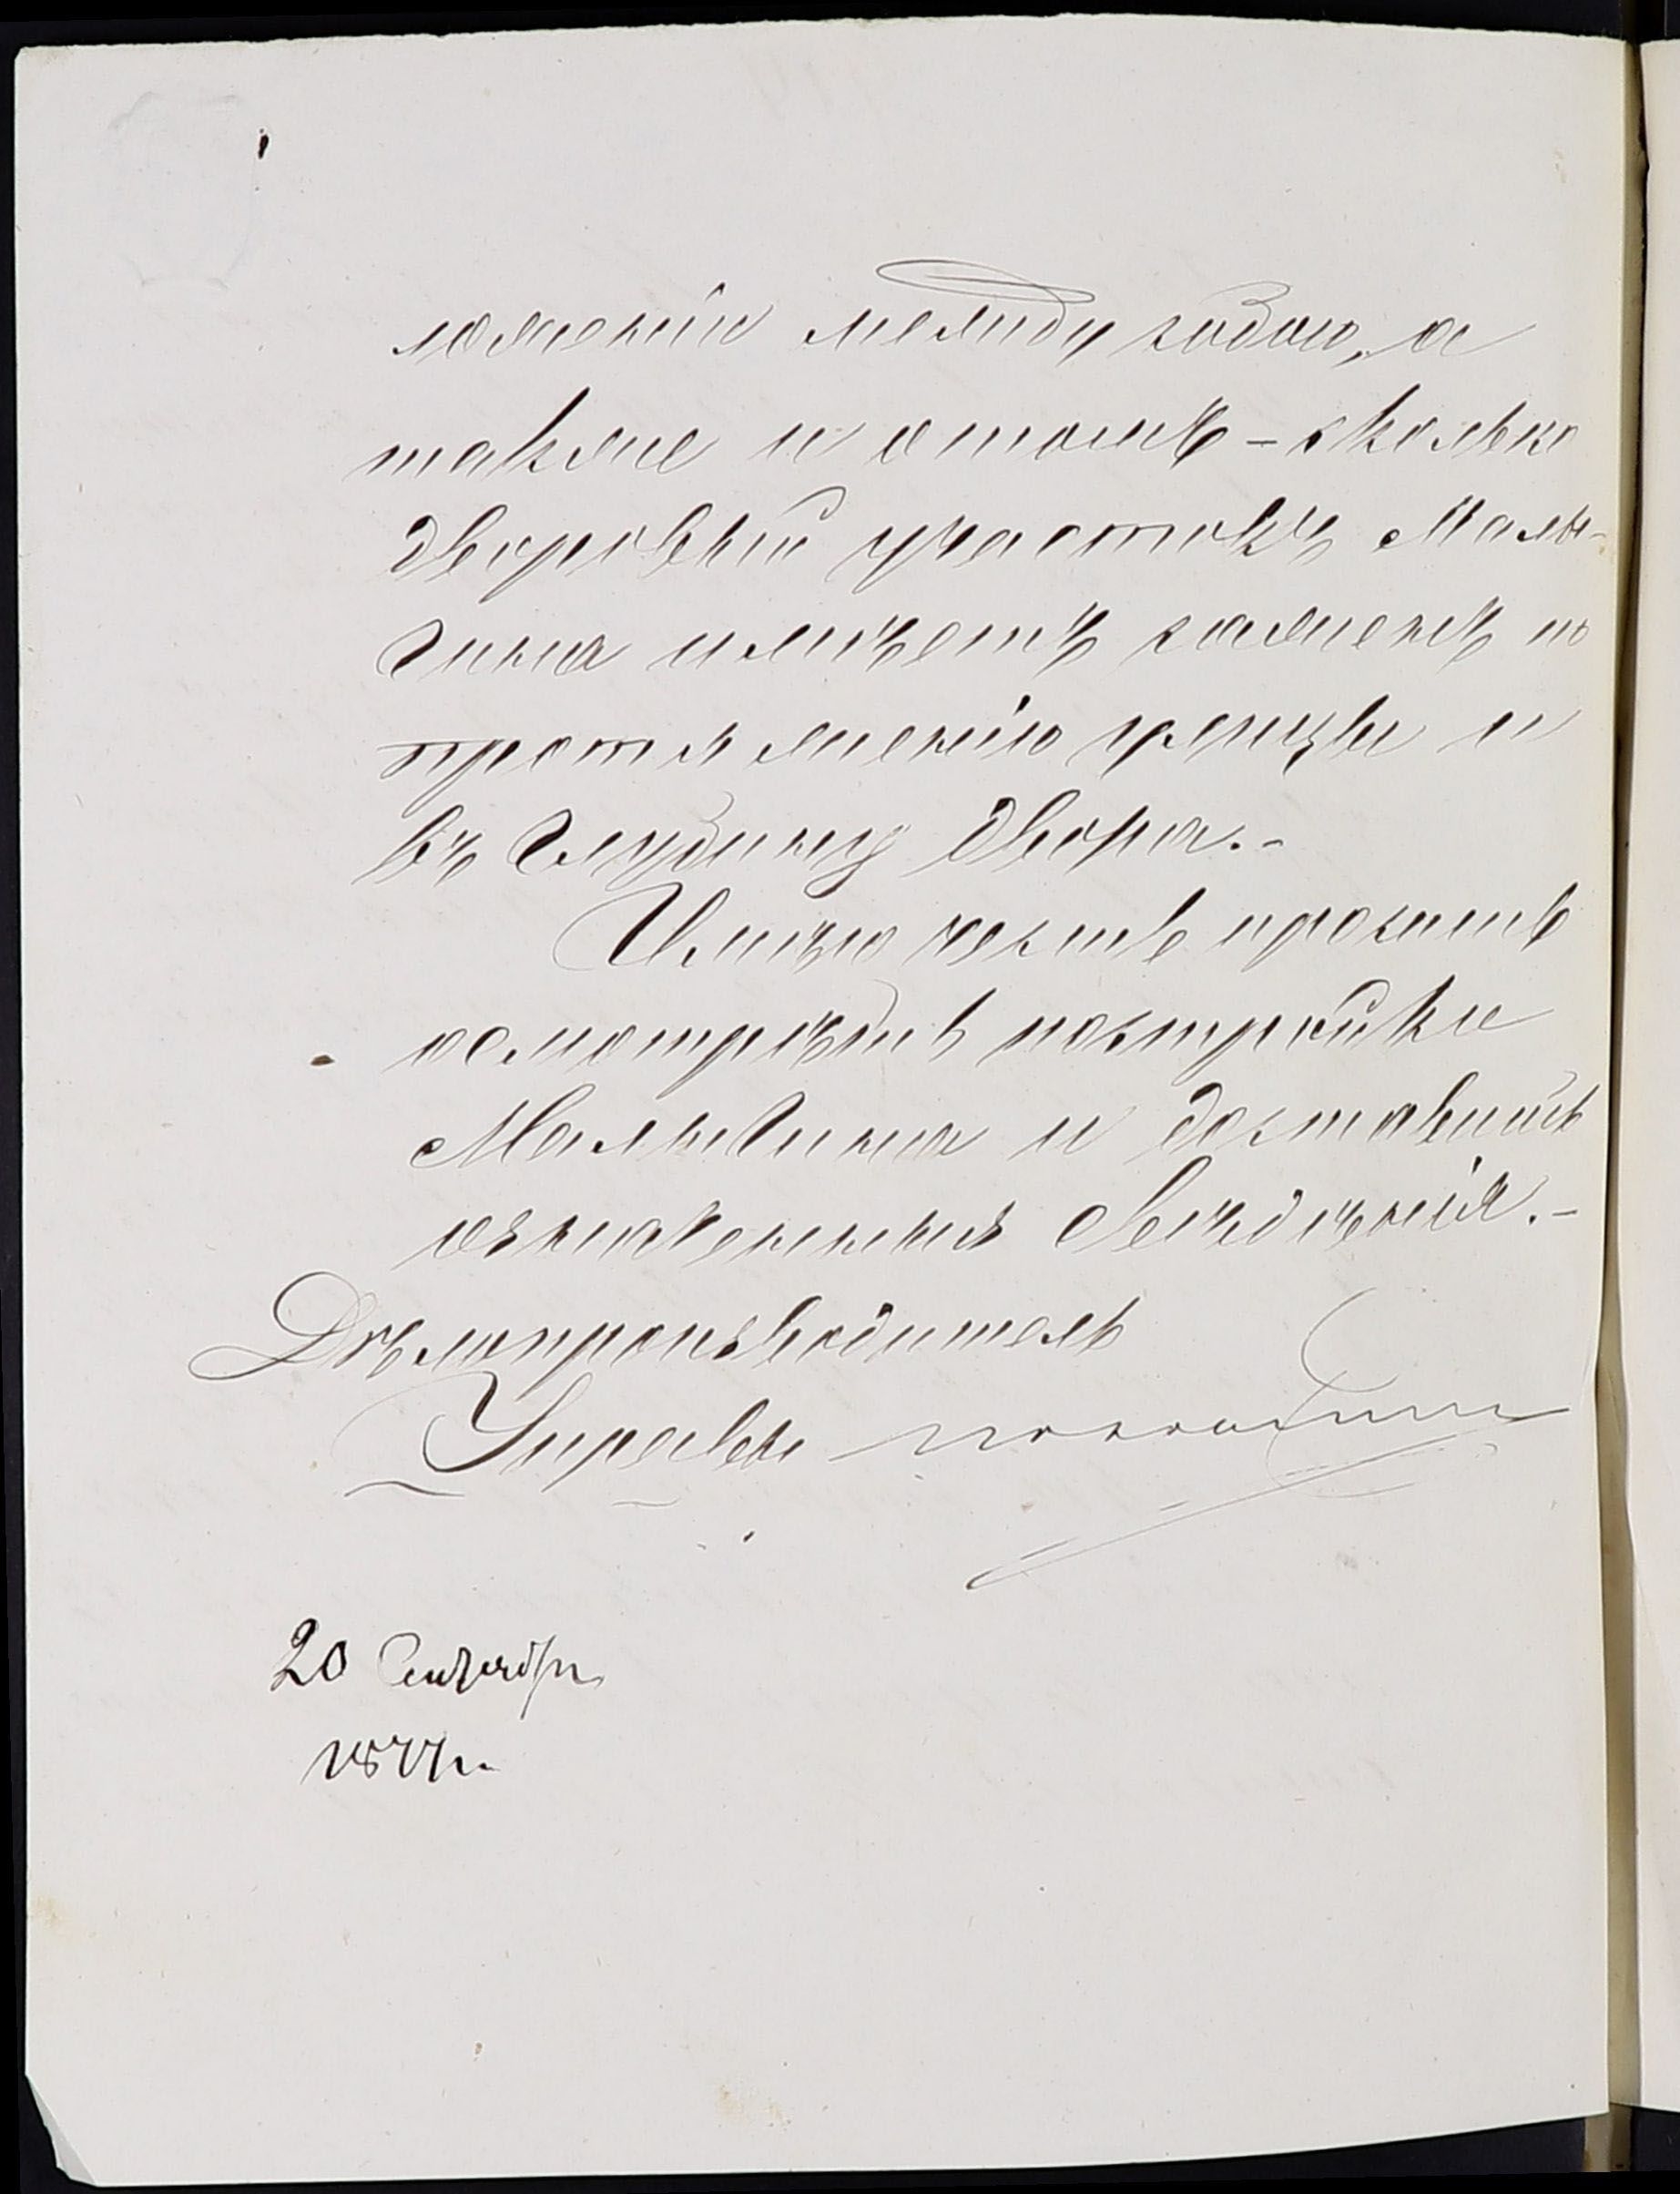 ложеніи между собою, а
также и о томъ - сколько
дворовый участокъ Малы-
гина имѣетъ саженъ по
протяженію улицы и
въ глубину двора.-
Имѣю честь просить
осмотрѣть постройки
Малыгина и доставить
означенныя свѣдѣнія.-
Дѣлопроизводитель
Управы
20 Сентября
1877 г.